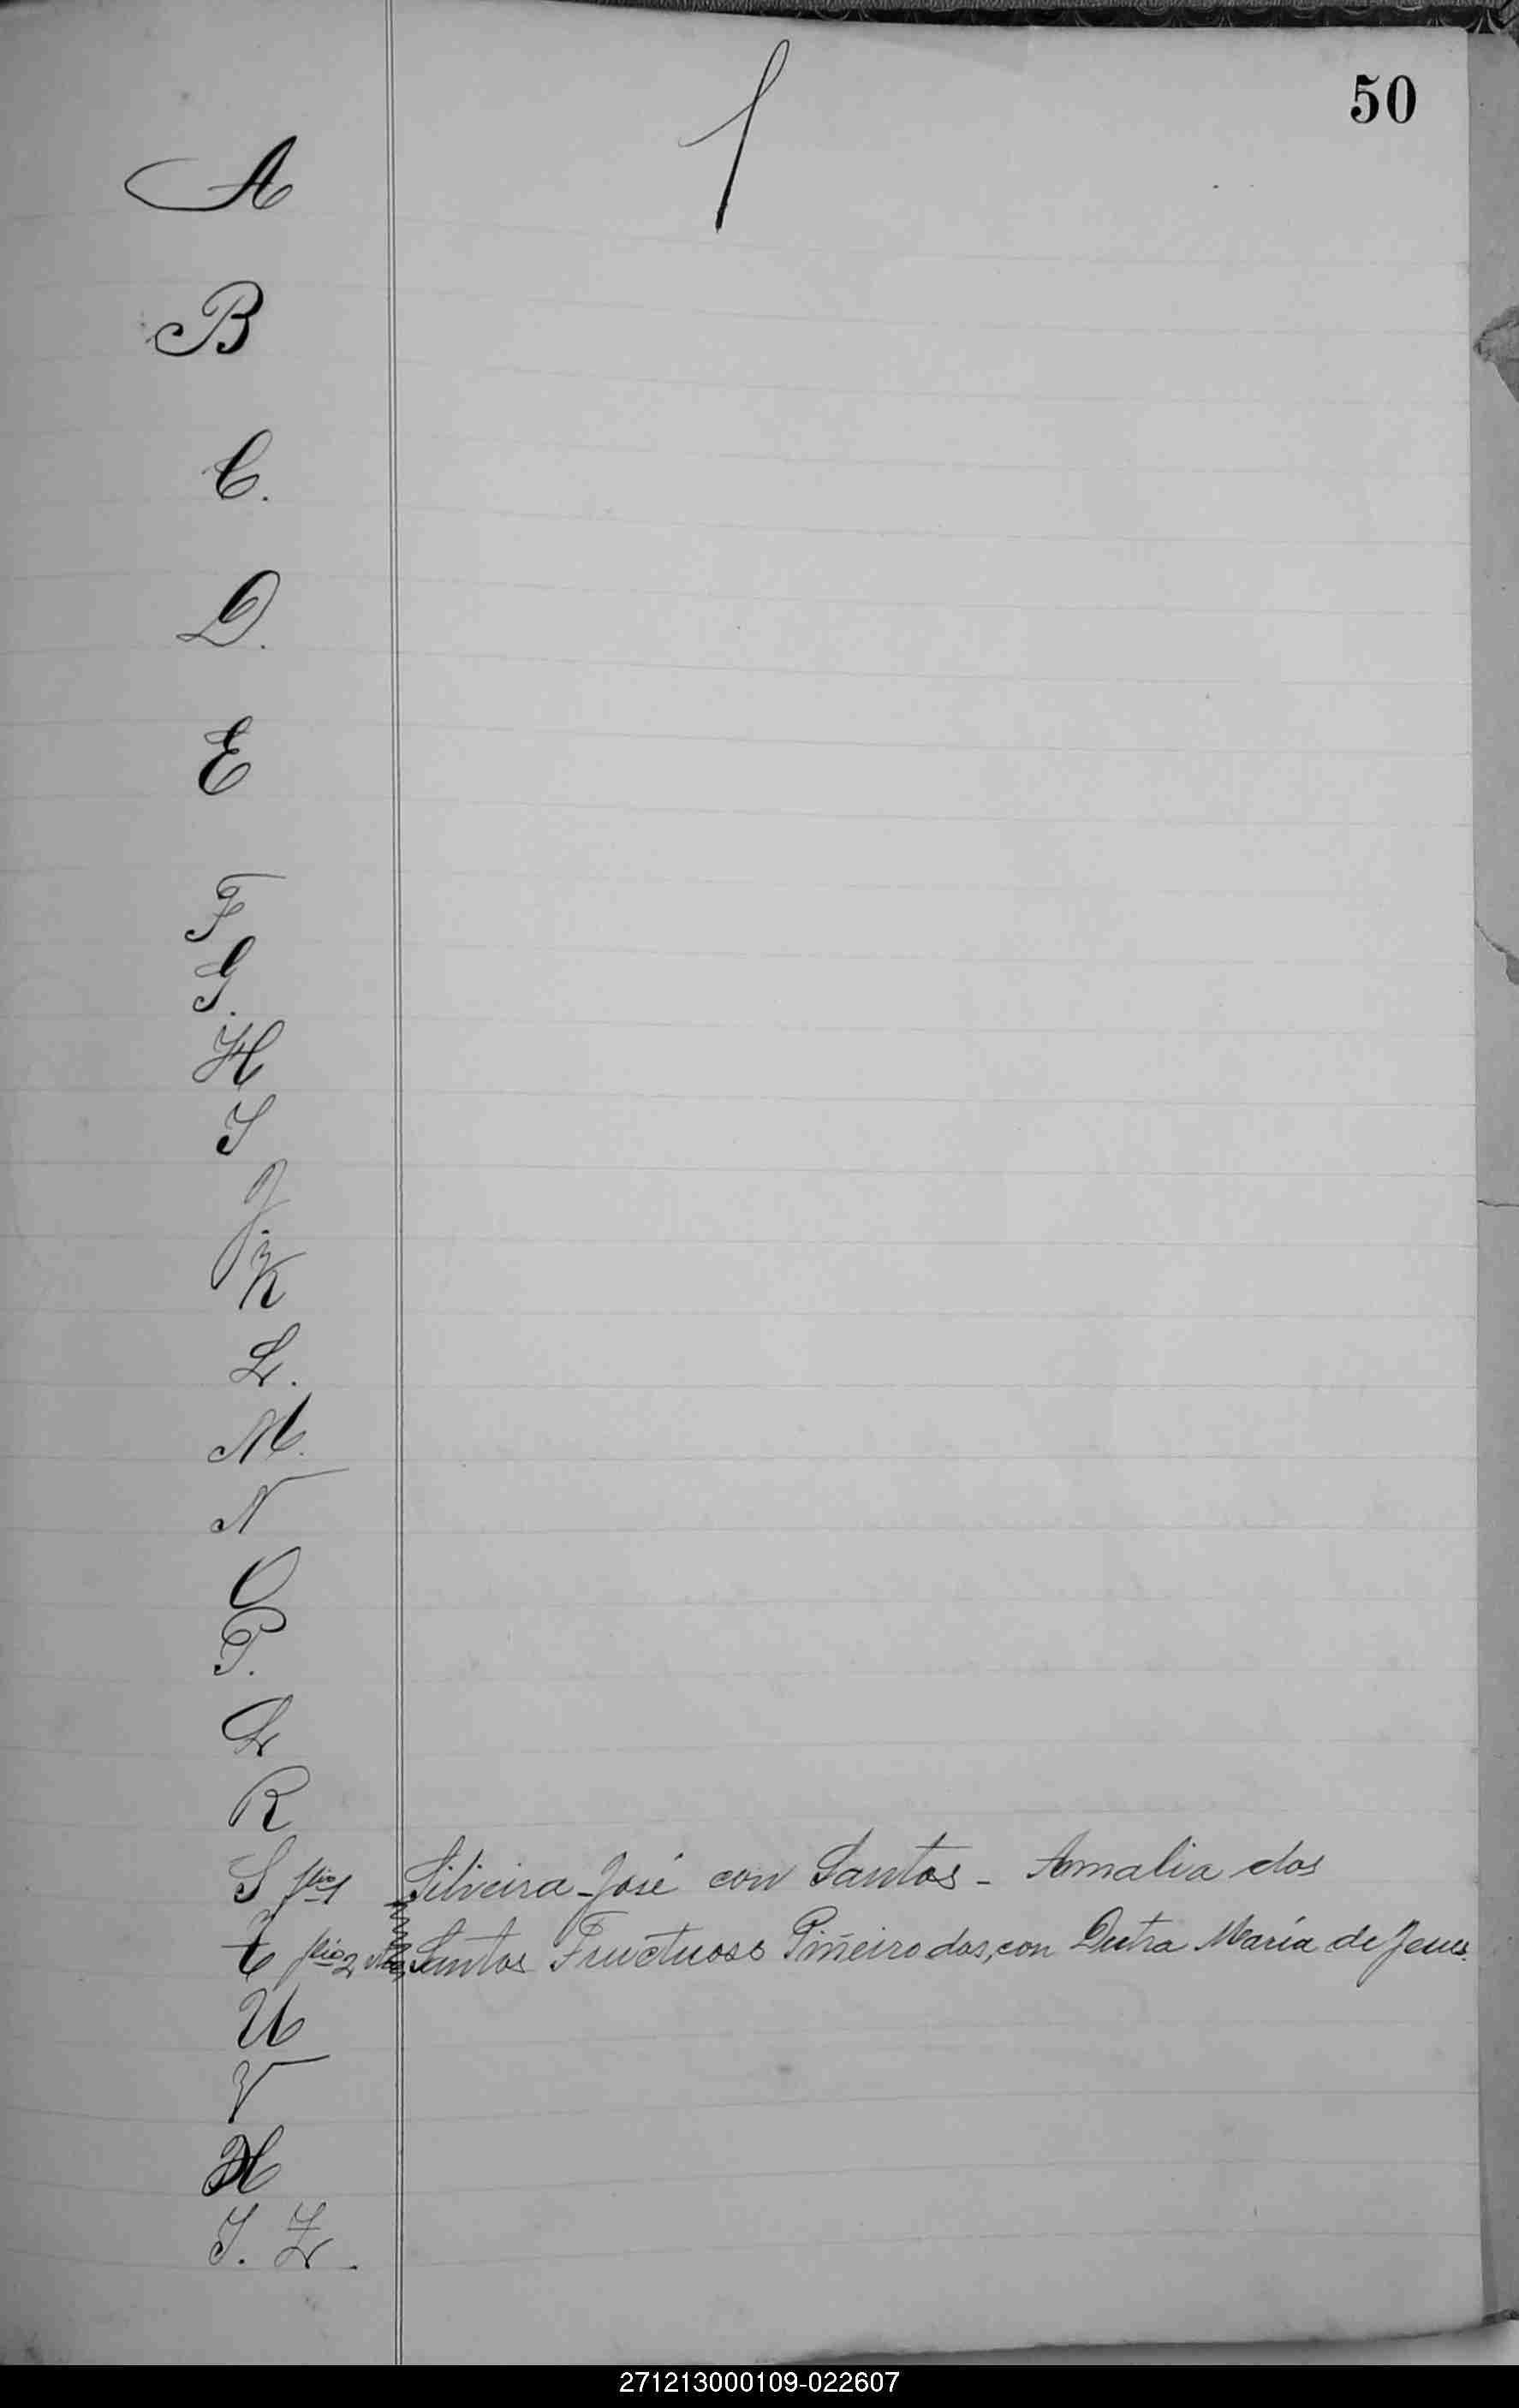 50
A
B
C.
D.
E
F
G.
H
I
J.
K
L.
M.
N
O
P.
Q
R
S flio 1 Silveira José con Santos - Amalia dos
T flio 2 Santos Fructuoso Piñeiro dos, con Dutra María de Jesus.
U
V
X
Y. Z.
271213000109-022607